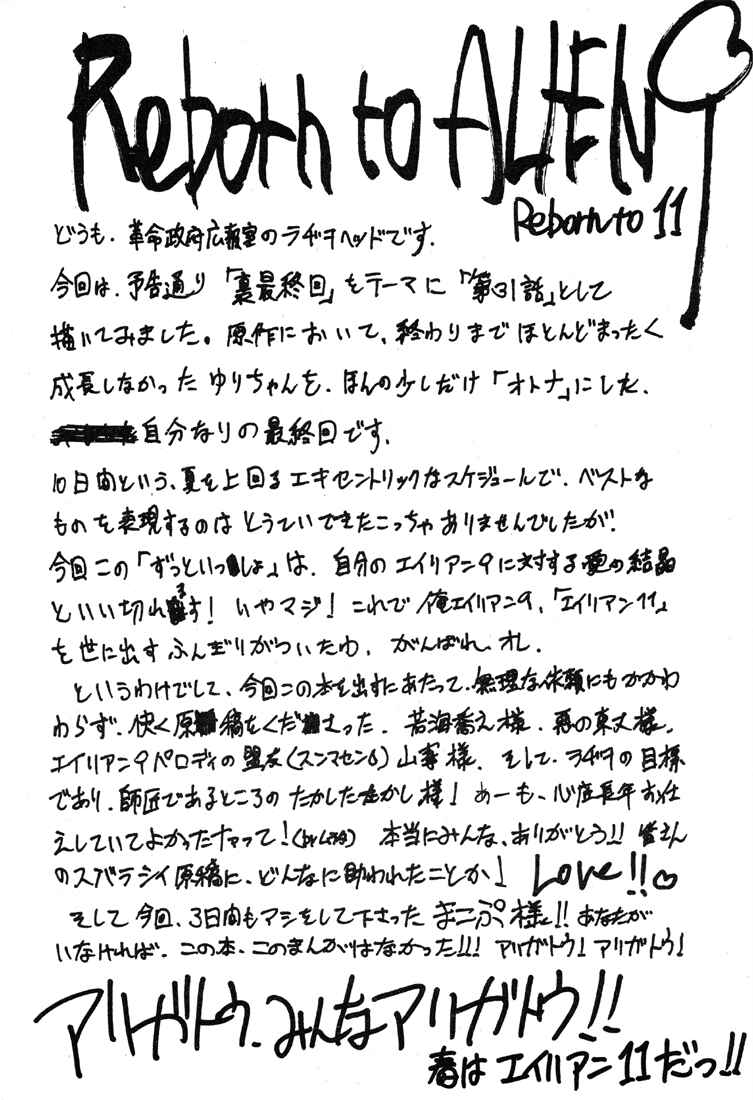 Reborn to ALIEN9
Reborn to 11
どうも、革命政府広報室のラヂヲヘッドです。
今回は、予告通り「裏最終回」をテーマに「第31話」として
描いてみました。原作において、終わりまでほとんどまったく
成長しなかったゆりちゃんを、ほんの少しだけ「オトナ」にした、
自分なりの最終回です。
10日間という、夏を上回るエキセントリックなスケジュールで、ベストな
ものを表現するのはとうていできたこっちゃありませんでしたが、
今回この「ずっといっしょ」は、自分のエイリアン9に対する愛の結晶
といい切れます! いやマジ! これで俺エイリアン9、「エイリアン11」
を世に出すふんぎりがついたわ。がんばれ、オレ。
というわけでして、今回この本を出すにあたって、無理な依頼にもかかわ
わらず、快く原稿をくださった、若海喬え様、悪の東丈様、
エイリアン9パロディの盟友(スンマセン6)山塞様、そして、ラヂヲの目標
であり、師匠であるところのたかしたたかし様! あーも、心底長年お仕
えしていてよかったナァって! 本当にみんな、ありがとう!! 皆さん
のスバラシイ原稿に、どんなに助われたことか! Love!!♡
そして今回、3日間もアシをして下さったまこぷ様!! あなたが
いなければ、この本、このまんがはなかった!!! アリガトウ! アリガトウ!
アリガトウ、みんなアリガトウ!!
春はエイリアン11だっ!!